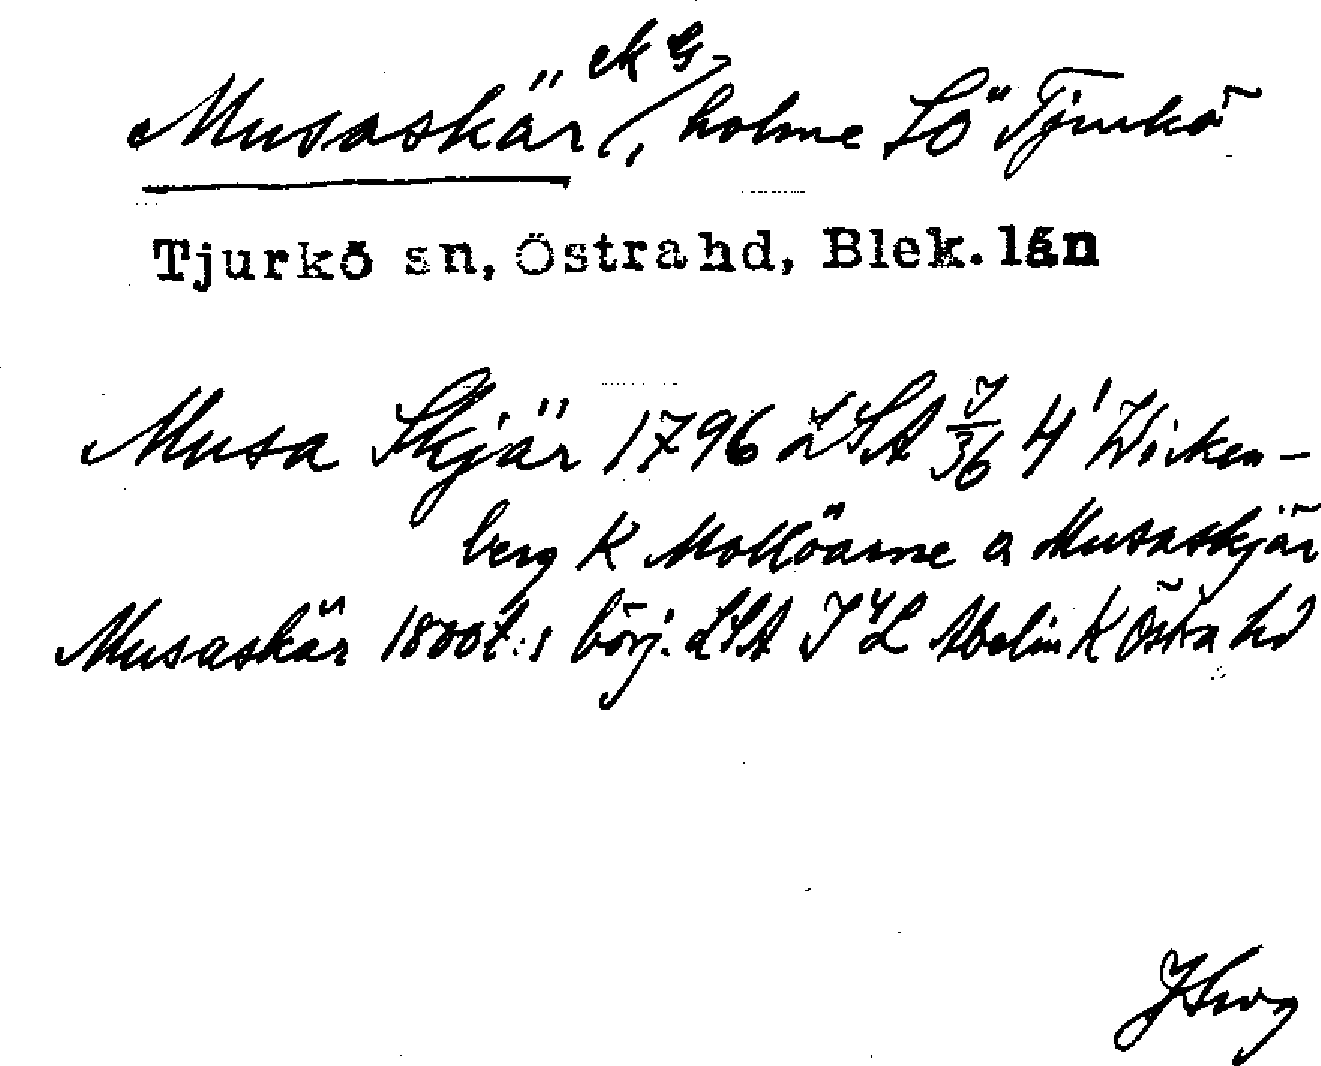 ek G
Musaskär, holme SÖ Tjurkö
Tjurkö sn, Östra hd, Blek. län
Musa Skjär 1796 LSA J/36 4' Wicken-
berg K Mollöarne o Musaskjär
Musaskär 1800t:s börj. LSA Abelin K Östra hd